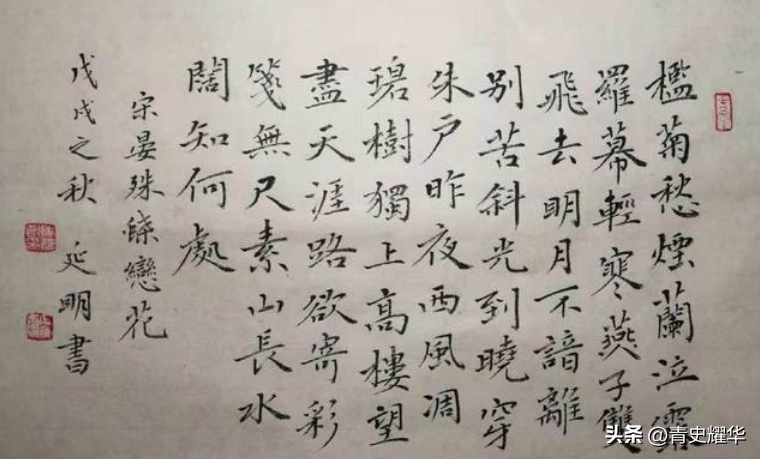 檻菊愁煙蘭泣露
羅幕輕寒燕子雙
飛去明月不諳離
別苦斜光到曉穿
朱戶昨夜西風凋
碧樹獨上高樓望
盡天涯路欲寄彩
箋無尺素山長水
闊知何處
宋晏殊蝶戀花
戊戌之秋 延明書
头条 @青史耀华